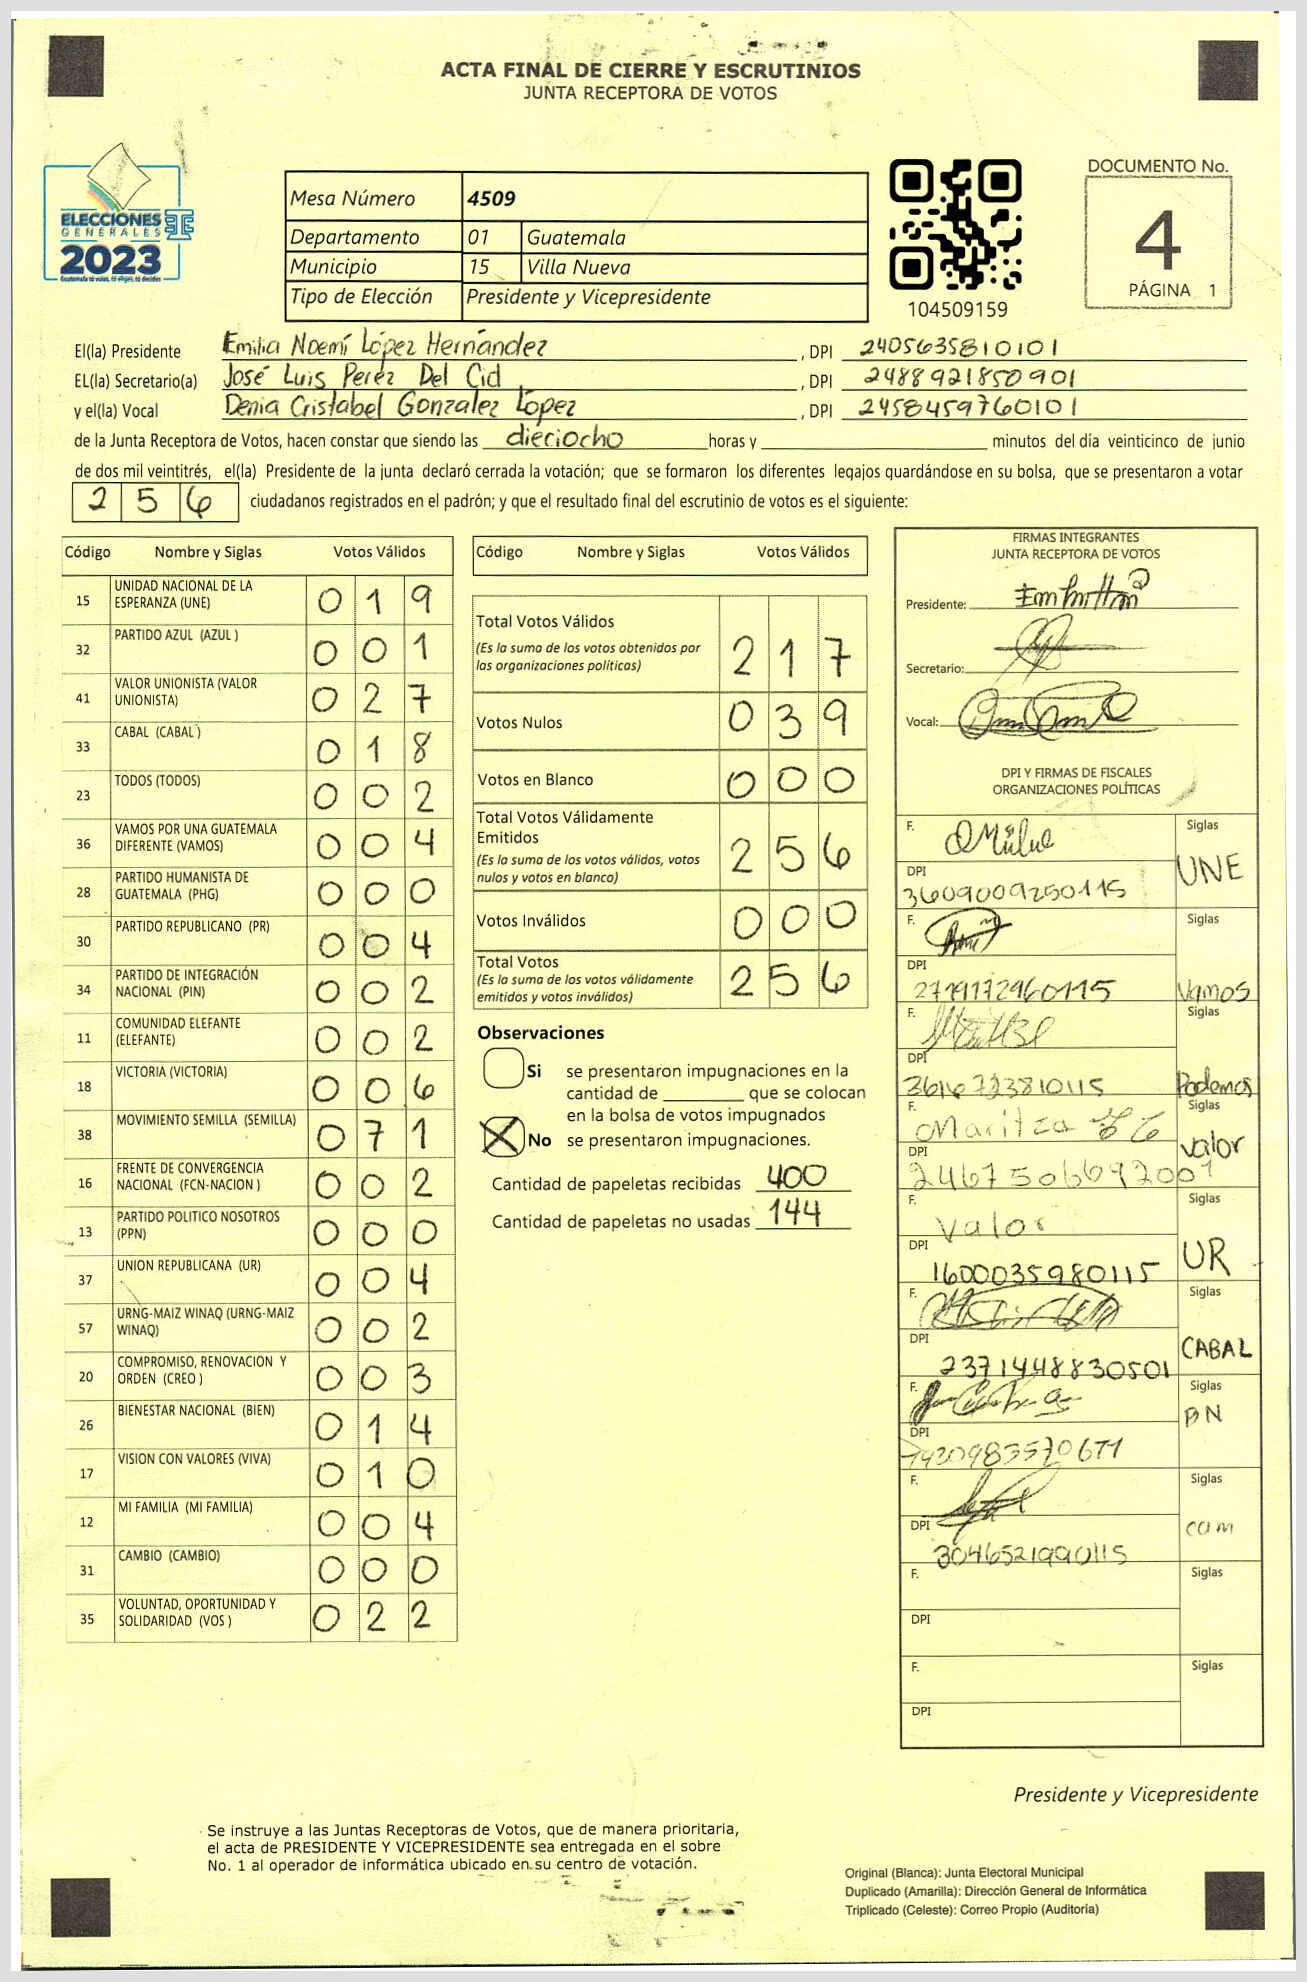 ACTA FINAL DE CIERRE Y ESCRUTINIOS
JUNTA RECEPTORA DE VOTOS
ELECCIONES
GENERALES
2023
Guatemala tú votas, tú eliges, tú decides
Mesa Número 4509
Departamento 01 Guatemala
Municipio 15 Villa Nueva
Tipo de Elección Presidente y Vicepresidente
104509159
DOCUMENTO No.
4
PÁGINA 1
El(la) Presidente Emilia Noemí López Hernández , DPI 2405635810101
EL(la) Secretario(a) José Luis Perez Del Cid , DPI 2488921850901
y el(la) Vocal Denia Cristabel Gonzalez López , DPI 2458459760101
de la Junta Receptora de Votos, hacen constar que siendo las dieciocho horas y minutos del día veinticinco de junio
de dos mil veintitrés, el(la) Presidente de la junta declaró cerrada la votación; que se formaron los diferentes legajos guardándose en su bolsa, que se presentaron a votar
256 ciudadanos registrados en el padrón; y que el resultado final del escrutinio de votos es el siguiente:
Código Nombre y Siglas Votos Válidos
15 UNIDAD NACIONAL DE LA ESPERANZA (UNE) 019
32 PARTIDO AZUL (AZUL ) 001
41 VALOR UNIONISTA (VALOR UNIONISTA) 027
33 CABAL (CABAL ) 018
23 TODOS (TODOS) 002
36 VAMOS POR UNA GUATEMALA DIFERENTE (VAMOS) 004
28 PARTIDO HUMANISTA DE GUATEMALA (PHG) 000
30 PARTIDO REPUBLICANO (PR) 004
34 PARTIDO DE INTEGRACIÓN NACIONAL (PIN) 002
11 COMUNIDAD ELEFANTE (ELEFANTE) 002
18 VICTORIA (VICTORIA) 006
38 MOVIMIENTO SEMILLA (SEMILLA) 071
16 FRENTE DE CONVERGENCIA NACIONAL (FCN-NACION ) 002
13 PARTIDO POLITICO NOSOTROS (PPN) 000
37 UNION REPUBLICANA (UR) 004
57 URNG-MAIZ WINAQ (URNG-MAIZ WINAQ) 002
20 COMPROMISO, RENOVACION Y ORDEN (CREO ) 003
26 BIENESTAR NACIONAL (BIEN) 014
17 VISION CON VALORES (VIVA) 010
12 MI FAMILIA (MI FAMILIA) 004
31 CAMBIO (CAMBIO) 000
35 VOLUNTAD, OPORTUNIDAD Y SOLIDARIDAD (VOS ) 022
Código Nombre y Siglas Votos Válidos
Total Votos Válidos
(Es la suma de los votos obtenidos por
las organizaciones políticas) 217
Votos Nulos 039
Votos en Blanco 000
Total Votos Válidamente
Emitidos
(Es la suma de los votos válidos, votos
nulos y votos en blanco) 256
Votos Inválidos 000
Total Votos
(Es la suma de los votos válidamente
emitidos y votos inválidos) 256
Observaciones
Si se presentaron impugnaciones en la
cantidad de que se colocan
en la bolsa de votos impugnados
No se presentaron impugnaciones.
Cantidad de papeletas recibidas 400
Cantidad de papeletas no usadas 144
FIRMAS INTEGRANTES
JUNTA RECEPTORA DE VOTOS
Presidente:
Secretario:
Vocal:
DPI Y FIRMAS DE FISCALES
ORGANIZACIONES POLÍTICAS
F. Siglas
UNE
DPI
3609009250115
F. Siglas
DPI
2719172960115 Vamos
F. Siglas
DPI
3616723810115 Podemos
F. Maritza Siglas
Valor
DPI
2467506692001
F. Valor Siglas
UR
DPI
1600035980115
F. Siglas
CABAL
DPI
2371448830501
F. Siglas
BN
DPI
F. Siglas
cam
DPI
3046521990115
F. Siglas
DPI
F. Siglas
DPI
Presidente y Vicepresidente
Se instruye a las Juntas Receptoras de Votos, que de manera prioritaria,
el acta de PRESIDENTE Y VICEPRESIDENTE sea entregada en el sobre
No. 1 al operador de informática ubicado en su centro de votación.
Original (Blanca): Junta Electoral Municipal
Duplicado (Amarilla): Dirección General de Informática
Triplicado (Celeste): Correo Propio (Auditoría)